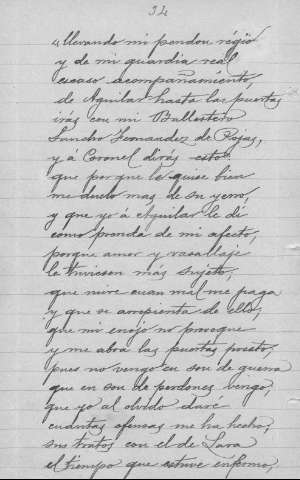 34
"llevando mi pendon régio
y de mi guardia real
escaso acompañamiento,
de Aguilar hasta las puertas
irás con mi Ballestero
Sancho Fernandez de Rojas,
y á Coronel dirás esto
que porque le quise bien
me duele mas de su yerro,
y que yo á Aguilar le dí
como prenda de mi afecto,
porque amor y vasallaje
le tuviesen más sujeto,
que mire cuan mal me paga
y que se arrepienta de ello,
que mi enojo no provoque
y me abra las puertas presto,
pues no vengo en son de guerra
que en son de perdones vengo,
que yo al olvido daré
cuantas ofensas me ha hecho,
sus tratos con el de Lara
el tiempo que estuve enfermo,